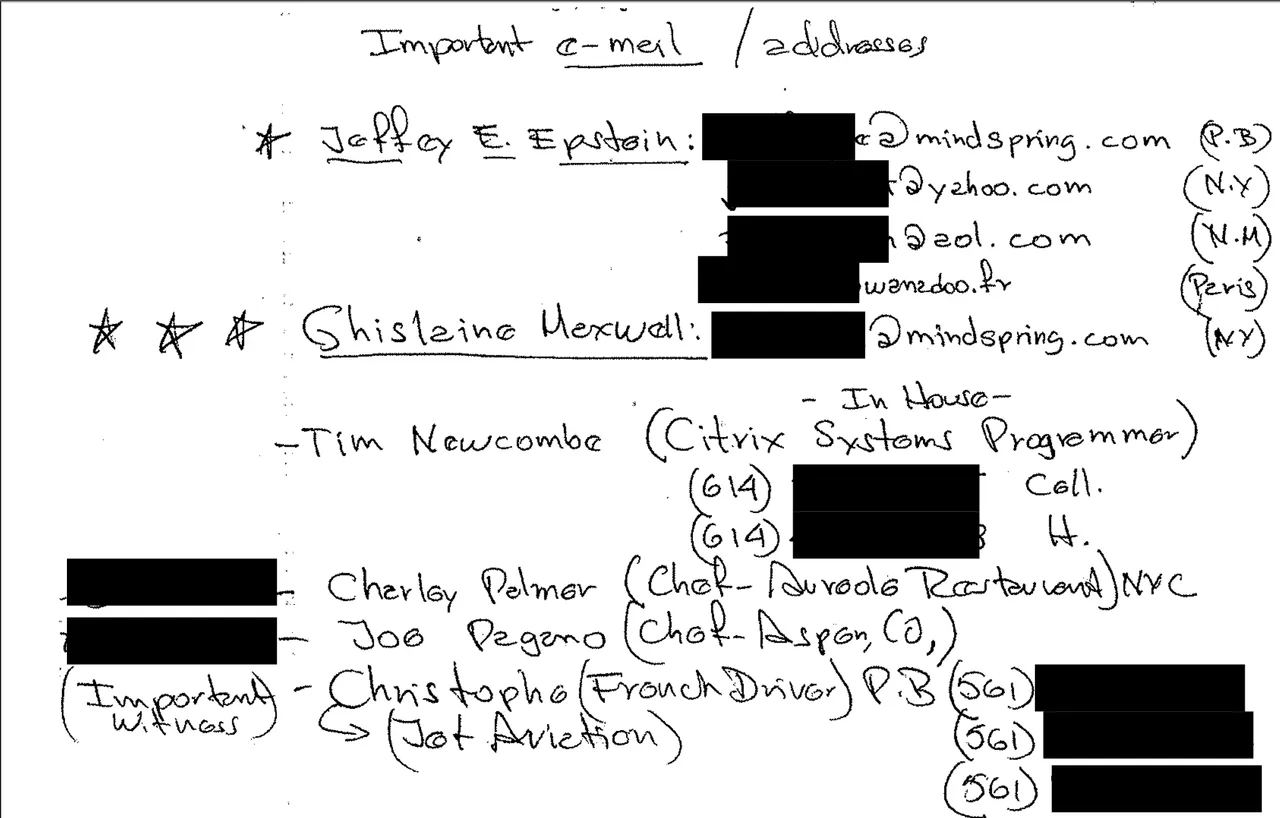 Important e-mail / addresses
★ Jeffey E. Epstein: e@mindspring.com (P.B)
t@yahoo.com (N.Y)
n@aol.com (N.M)
wanadoo.fr (Paris)
★ ★ ★ Ghislaine Maxwell: @mindspring.com (NY)
- In House -
- Tim Newcombe (Citrix Systems Programmer)
(614) Cell.
(614) H.
- Charley Palmer (Chef - Aureole Restaurant) NYC
- Joe Pagano (Chef - Aspen, CO,)
(Important Witness) - Christophe (French Driver) P.B (561)
↳ (Jet Aviation) (561)
(561)